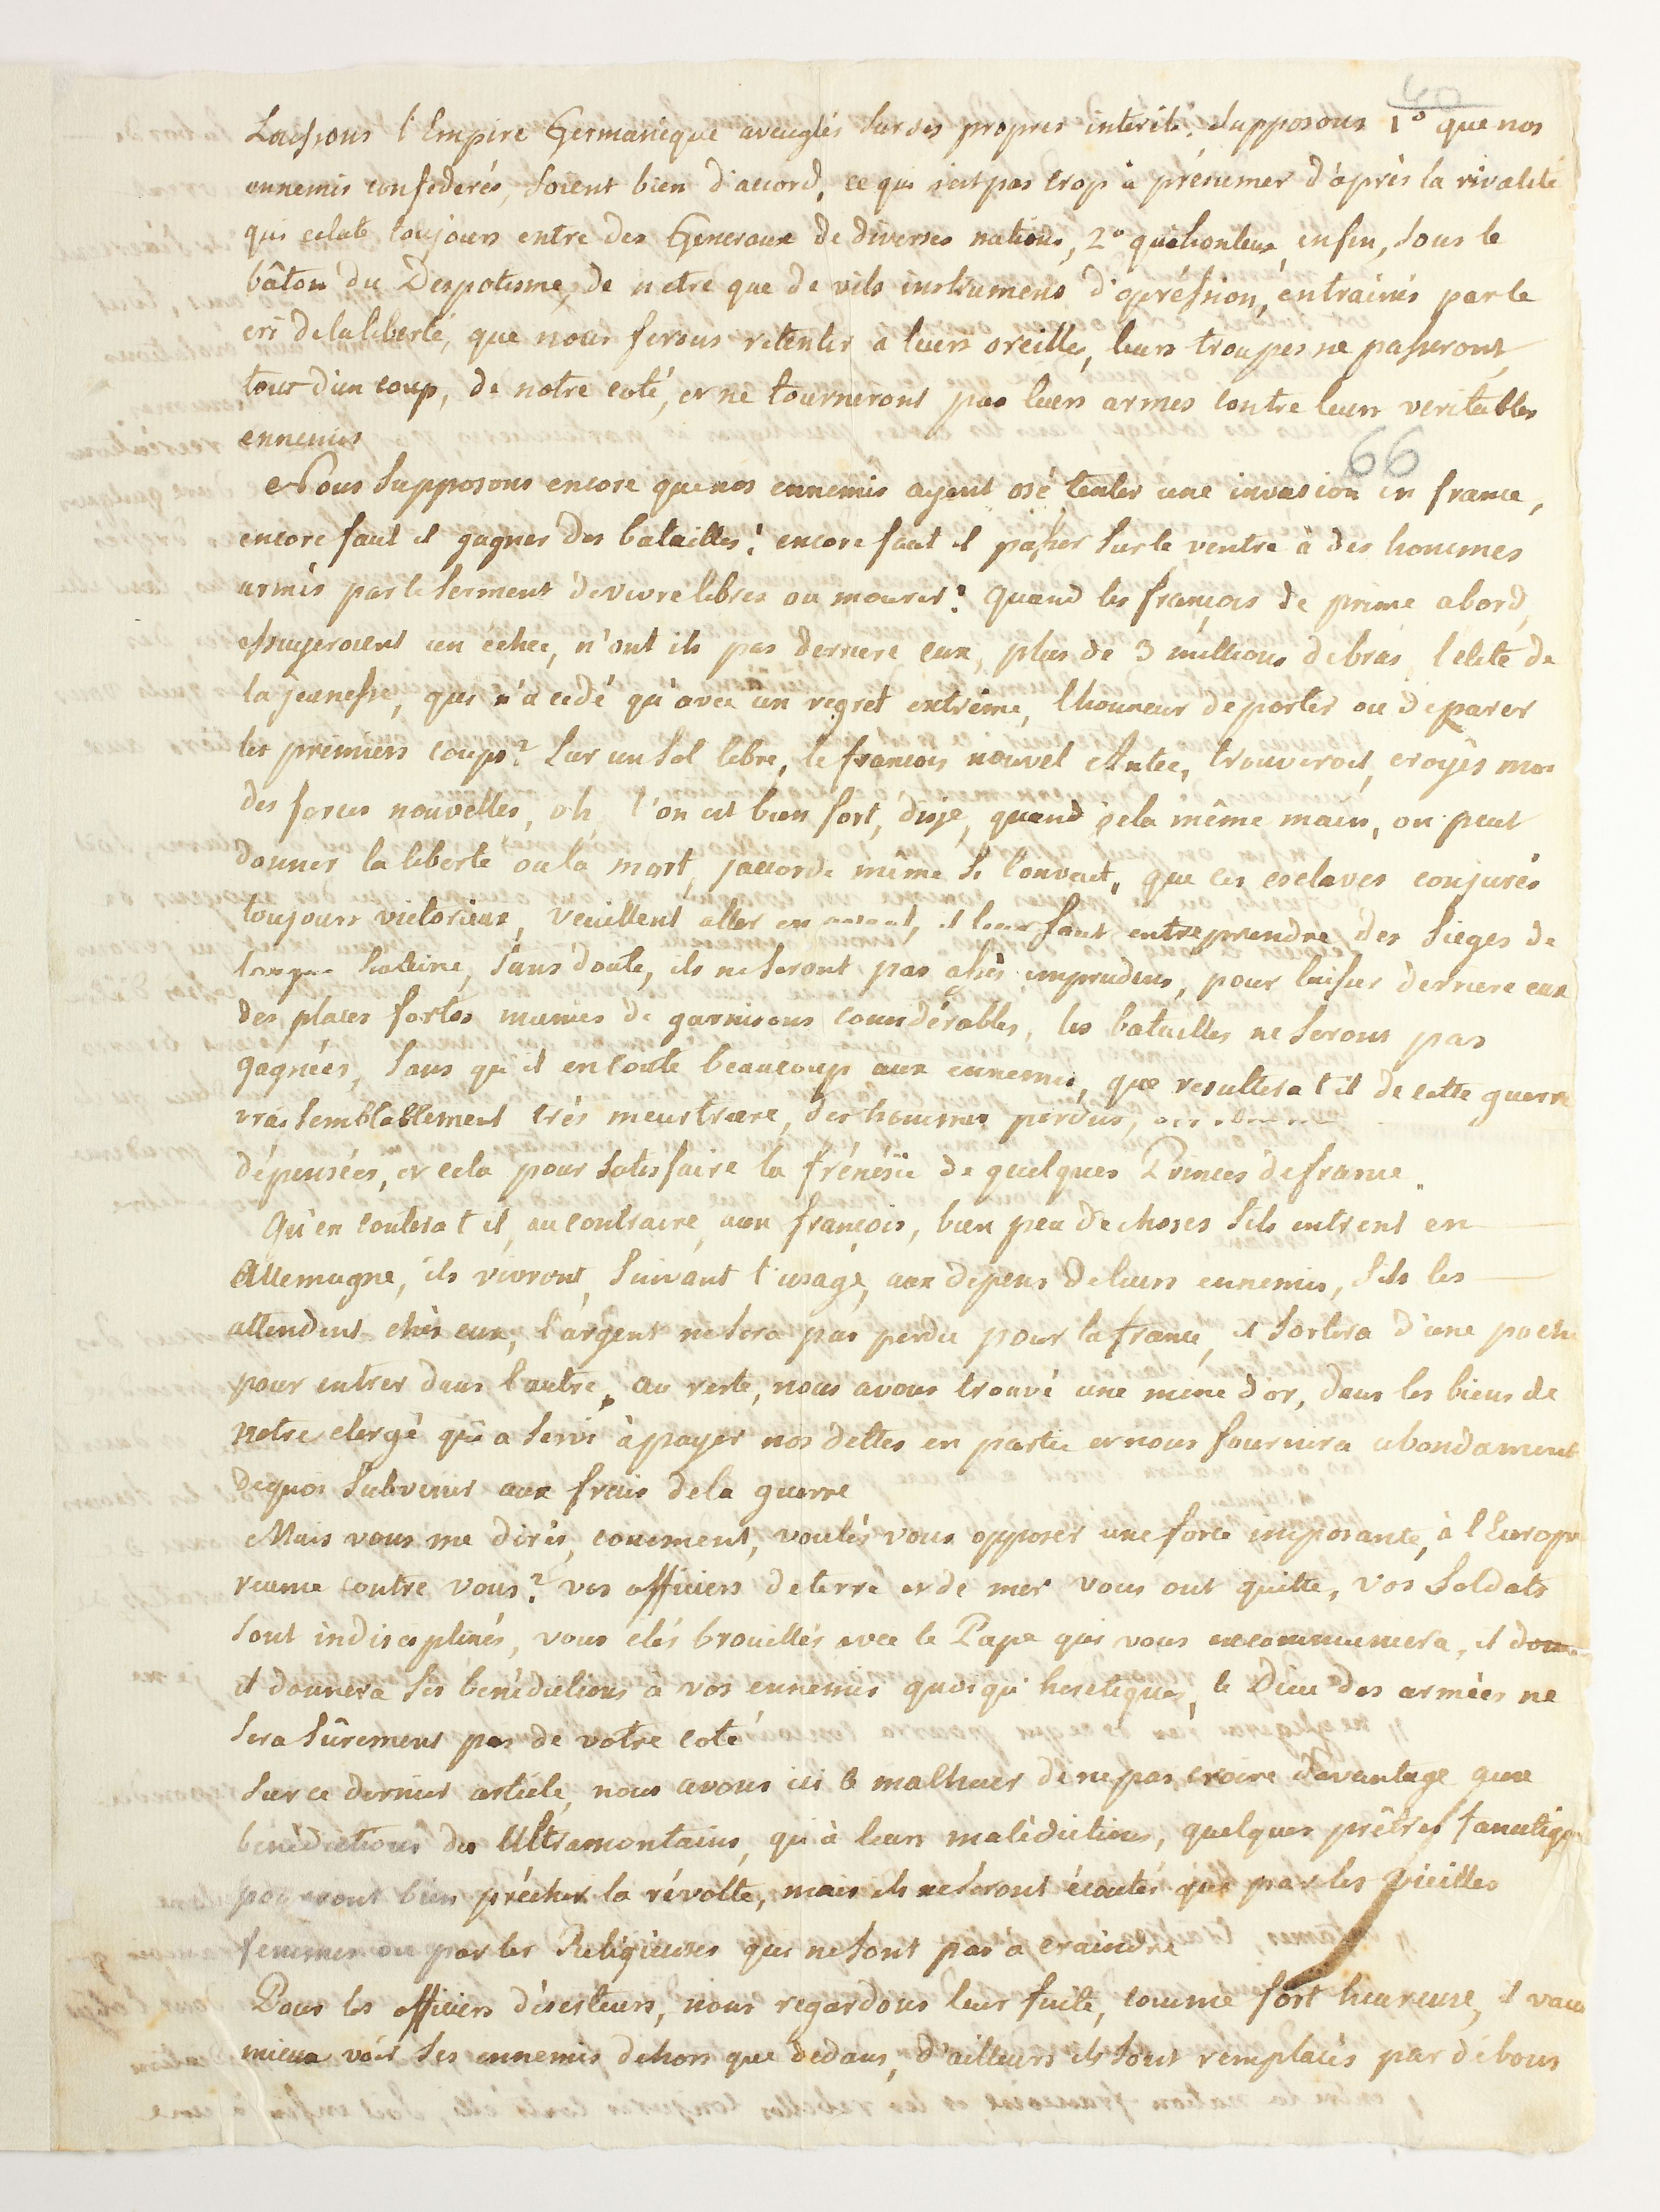 60
Lachons l'Empire Germanique aveuglés sur ses propres interêts. Supposons 1° que nos
ennemis confederés, soient bien d'accord, ce qui n'est pas trop à présumer d'après la rivalité
qui eclate toujours entre des Generaux de diverses nations, 2° que honteux enfin, sous le
bâton du Despotisme, de n'etre que de vils instrumens d'opréssion, entrainés par le
cri de la liberté, que nous ferons retentir à leurs oreilles, leurs troupes ne passeront
tout d'un coup, de notre coté, et ne tourneront pas leurs armes contre leurs veritables
ennemis
66
Nous supposons encore que nos ennemis ayent osé tenter une invasion en france,
encore faut il gagner des batailles! encore faut il passer sur le ventre à des hommes
armés par le serment de vivre libres ou mourir? quand les françois de prime abord,
essuyeroient un échec, n'ont ils pas derriere eux, plus de 3 millions de bras, l'elite de
la jeunesse, qui n'a cedé qu'avec un regret extrême, l'honneur de porter ou de parer
les premiers coups? Sur un sol libre, le françois nouvel Antée, trouveroit, croyés moi
des forces nouvelles, oh l'on est bien fort, disje, quand de la même main, on peut
donner la liberté ou la mort, j'accorde même si l'on veut, que ces esclaves conjurés
toujours victorieux, veuillent aller en avant, il leur faut entreprendre des sieges de
longue haleine, sans doute, ils ne seront pas assés imprudens, pour laisser derriere eux
des places fortes munies de garnisons considérables, les batailles ne seront pas
gagnées, sans qu'il en coute beaucoup aux ennemis, que resultera t il de cette guerre
vraisemblablement très meurtriere, des hommes perdus,
dépensées, et cela pour satisfaire la frénésie de quelques Princes de france.
Qu'en coutera t il, au contraire, aux françois, bien peu de choses s'ils entrent en
Allemagne, ils vivront, suivant l'usage, aux dépens de leurs ennemis, s'ils les
attendent chès eux, l'argent ne sera pas perdu pour la france, il sortira d'une poche
pour entrer dans l'autre, au reste, nous avons trouvé une mine d'or, dans les biens de
notre clergé qui a servi à payer nos dettes en partie et nous fournira abondament
dequoi subvenir aux frais de la guerre
Mais vous me dirés, comment, voulés vous opposer une force imposante, à l'Europe
reunie contre vous? vos officiers de terre et de mer vous ont quitté, vos soldats
sont indisciplinés, vous etés brouillés avec le Pape qui vous excommuniera, il donn
il donnera ses bénédictions à vos ennemis quoiqu'heretiques, le Dieu des armées ne
sera sûrement pas de votre coté
Sur ce dernier article, nous avons ici le malheur de ne pas croire davantage aux
bénédictions des Ultramontains, qu'à leurs malédictions, quelques prêtres fanatiques
pourront bien précher la révolte, mais ils ne seront écoutés que par les vieilles
femmes ou par les Religieuses qui ne sont pas à craindre
Pour les officiers déserteurs, nous regardons leur fuite, comme fort heureuse, il vaut
mieux voir ses ennemis dehors que dedans, d'ailleurs ils sont remplacés par de bons